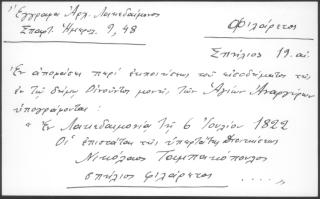 "Έγγραφα Αρχ. Λακεδαίμονος
Σπαρτ. Ημερολ. 9, 48
Φιλάρετος
Σπήλιος 19. αι.
Εν αποφάσει περί εκποιήσεως του εισοδήματος της
εν τω δήμω Οινούντος μονής των Αγίων Αναργύρων
υπογράφονται:
« Εν Λακεδαιμονία τη 6 Ιουλίου 1822
Οι επιστάται της υπερτάτης Διοικήσεως
Νικόλαος Τσιμπακόπουλος
σπήλιος φιλάρετος . . . . »